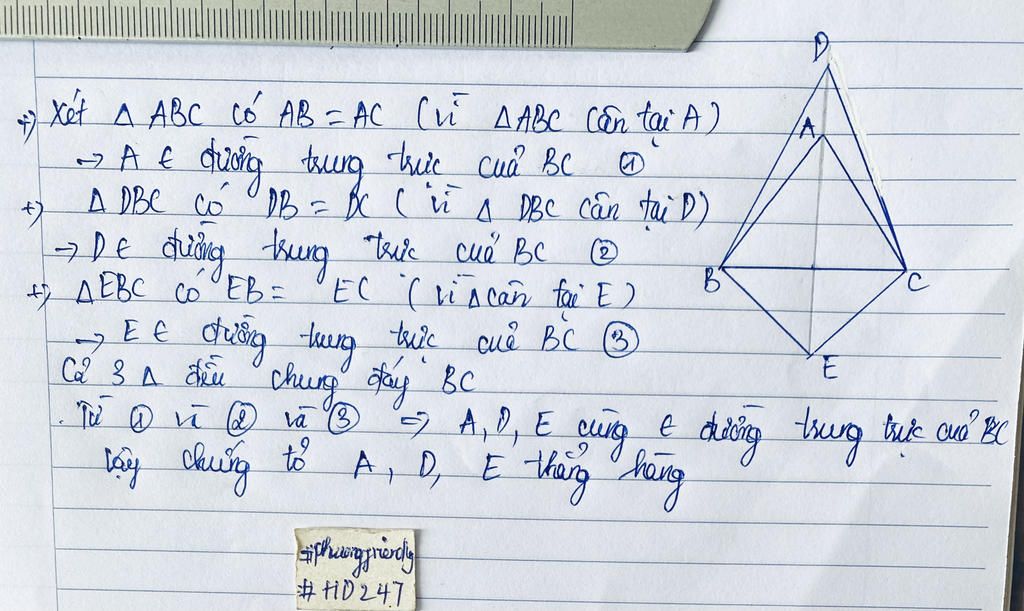 D
+) Xét Δ ABC có AB = AC (vì ΔABC cân tại A)
A
→ A ∈ đường trung trực cuả BC ①
+) Δ DBC có DB = DC (vì Δ DBC cân tại D)
→ D ∈ đường trung trực cuả BC ②
B C
+) ΔEBC có EB = EC (vì Δ cân tại E)
→ E ∈ đường trung trực cuả BC ③
E
Cả 3 Δ đều chung đáy BC
. Từ ① và ② và ③ => A, D, E cùng ∈ đường trung trực cuả BC
Vậy chứng tỏ A, D, E thẳng hàng
#phuongfriendly
#HD247